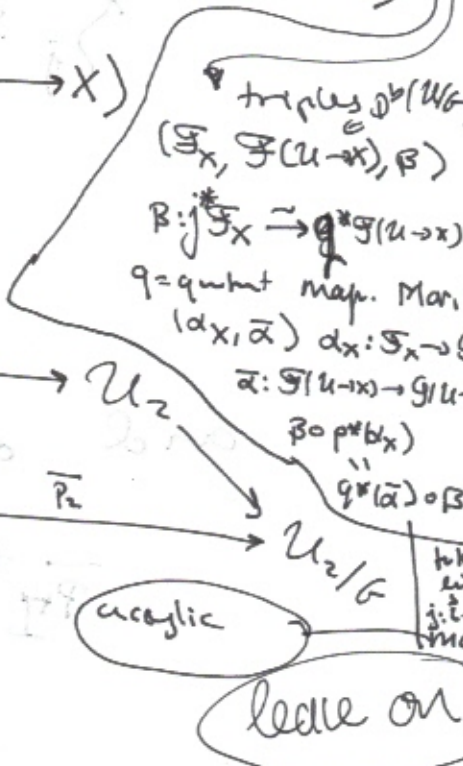 → X)
triples D^b(U/G
∈
(F_X, F(U→X), β)
β: j^*F_X ≅→ q^*F(U→X)
q = quotient map. Mor.
(α_X, ᾱ) α_X: F_X → G
ᾱ: F(U→X) → G(U→
β∘p^*(α_X)
=
q^*(ᾱ)∘β
→ U_2
P̄_2
→ U_2/G
acyclic
leave on